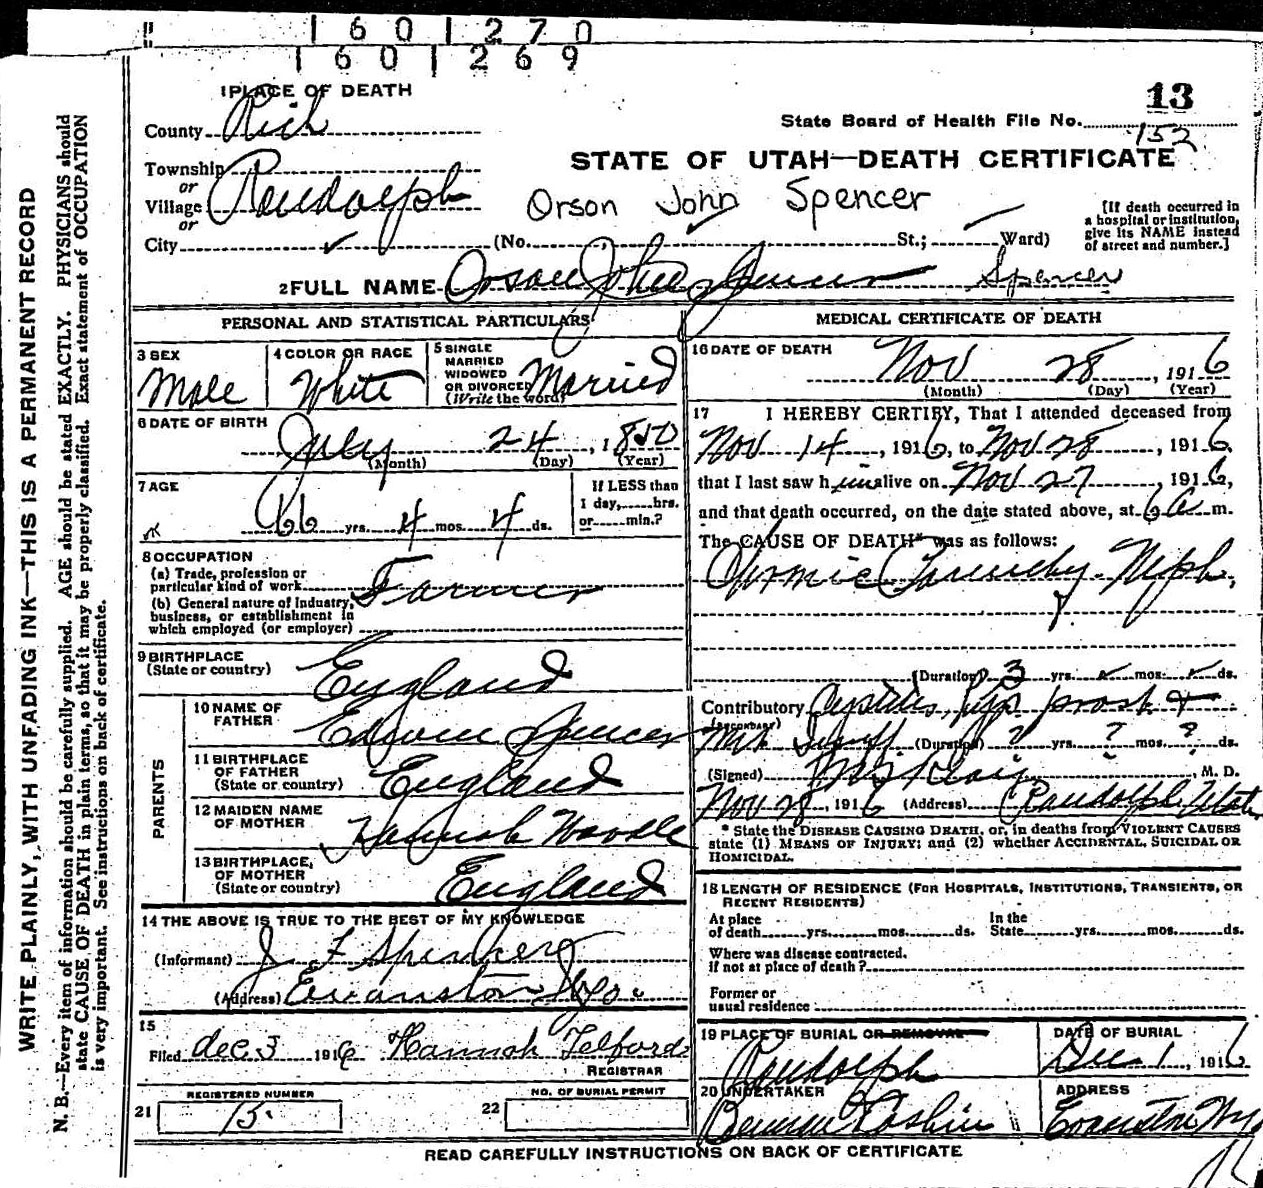 1 6 0 1 2 7 0
1 6 0 1 2 6 9
1 PLACE OF DEATH
13
County Rich
State Board of Health File No. 152
Township
or
Village Randolph
or
City (No. St.; Ward)
STATE OF UTAH—DEATH CERTIFICATE
Orson John Spencer
[If death occurred in
a hospital or institution,
give its NAME instead
of street and number.]
2 FULL NAME Orson John Spencer Spencer
PERSONAL AND STATISTICAL PARTICULARS
3 SEX
Male
4 COLOR OR RACE
White
5 SINGLE
MARRIED
WIDOWED
OR DIVORCED
(Write the word)
Married
6 DATE OF BIRTH
July 24, 1850
(Month) (Day) (Year)
7 AGE
66 yrs. 4 mos. 4 ds.
If LESS than
1 day, hrs.
or min.?
8 OCCUPATION
(a) Trade, profession or
particular kind of work Farmer
(b) General nature of industry,
business, or establishment in
which employed (or employer)
9 BIRTHPLACE
(State or country) England
PARENTS
10 NAME OF
FATHER Edwin Spencer
11 BIRTHPLACE
OF FATHER
(State or country) England
12 MAIDEN NAME
OF MOTHER Hannah
13 BIRTHPLACE,
OF MOTHER
(State or country) England
14 THE ABOVE IS TRUE TO THE BEST OF MY KNOWLEDGE
(Informant) J F Spencer
(Address) Evanston Wyo.
15
Filed Dec 3 1916 Hannah Telford
REGISTRAR
REGISTERED NUMBER
21 15.
NO. OF BURIAL PERMIT
22
MEDICAL CERTIFICATE OF DEATH
16 DATE OF DEATH
Nov 28, 1916
(Month) (Day) (Year)
17 I HEREBY CERTIFY, That I attended deceased from
Nov 14, 1916, to Nov 28, 1916,
that I last saw him alive on Nov 27, 1916,
and that death occurred, on the date stated above, at 6 A m.
The CAUSE OF DEATH* was as follows:
Neph,
(Duration) 3 yrs. mos. ds.
Contributory Cystitis, prost &
(SECONDARY)
(Duration) ? yrs. ? mos. ? ds.
(Signed) M. D.
Nov 28, 1916 (Address) Randolph Utah
* State the DISEASE CAUSING DEATH, or, in deaths from VIOLENT CAUSES
state (1) MEANS OF INJURY; and (2) whether ACCIDENTAL, SUICIDAL OR
HOMICIDAL.
18 LENGTH OF RESIDENCE (FOR HOSPITALS, INSTITUTIONS, TRANSIENTS, OR
RECENT RESIDENTS)
At place
of death yrs. mos. ds.
In the
State yrs. mos. ds.
Where was disease contracted.
if not at place of death?
Former or
usual residence
19 PLACE OF BURIAL OR REMOVAL
Randolph
DATE OF BURIAL
Dec 1, 1916
20 UNDERTAKER
ADDRESS
Evanston Wyo
READ CAREFULLY INSTRUCTIONS ON BACK OF CERTIFICATE
WRITE PLAINLY, WITH UNFADING INK—THIS IS A PERMANENT RECORD
N. B.—Every item of information should be carefully supplied. AGE should be stated EXACTLY. PHYSICIANS should
state CAUSE OF DEATH in plain terms, so that it may be properly classified. Exact statement of OCCUPATION
is very important. See instructions on back of certificate.